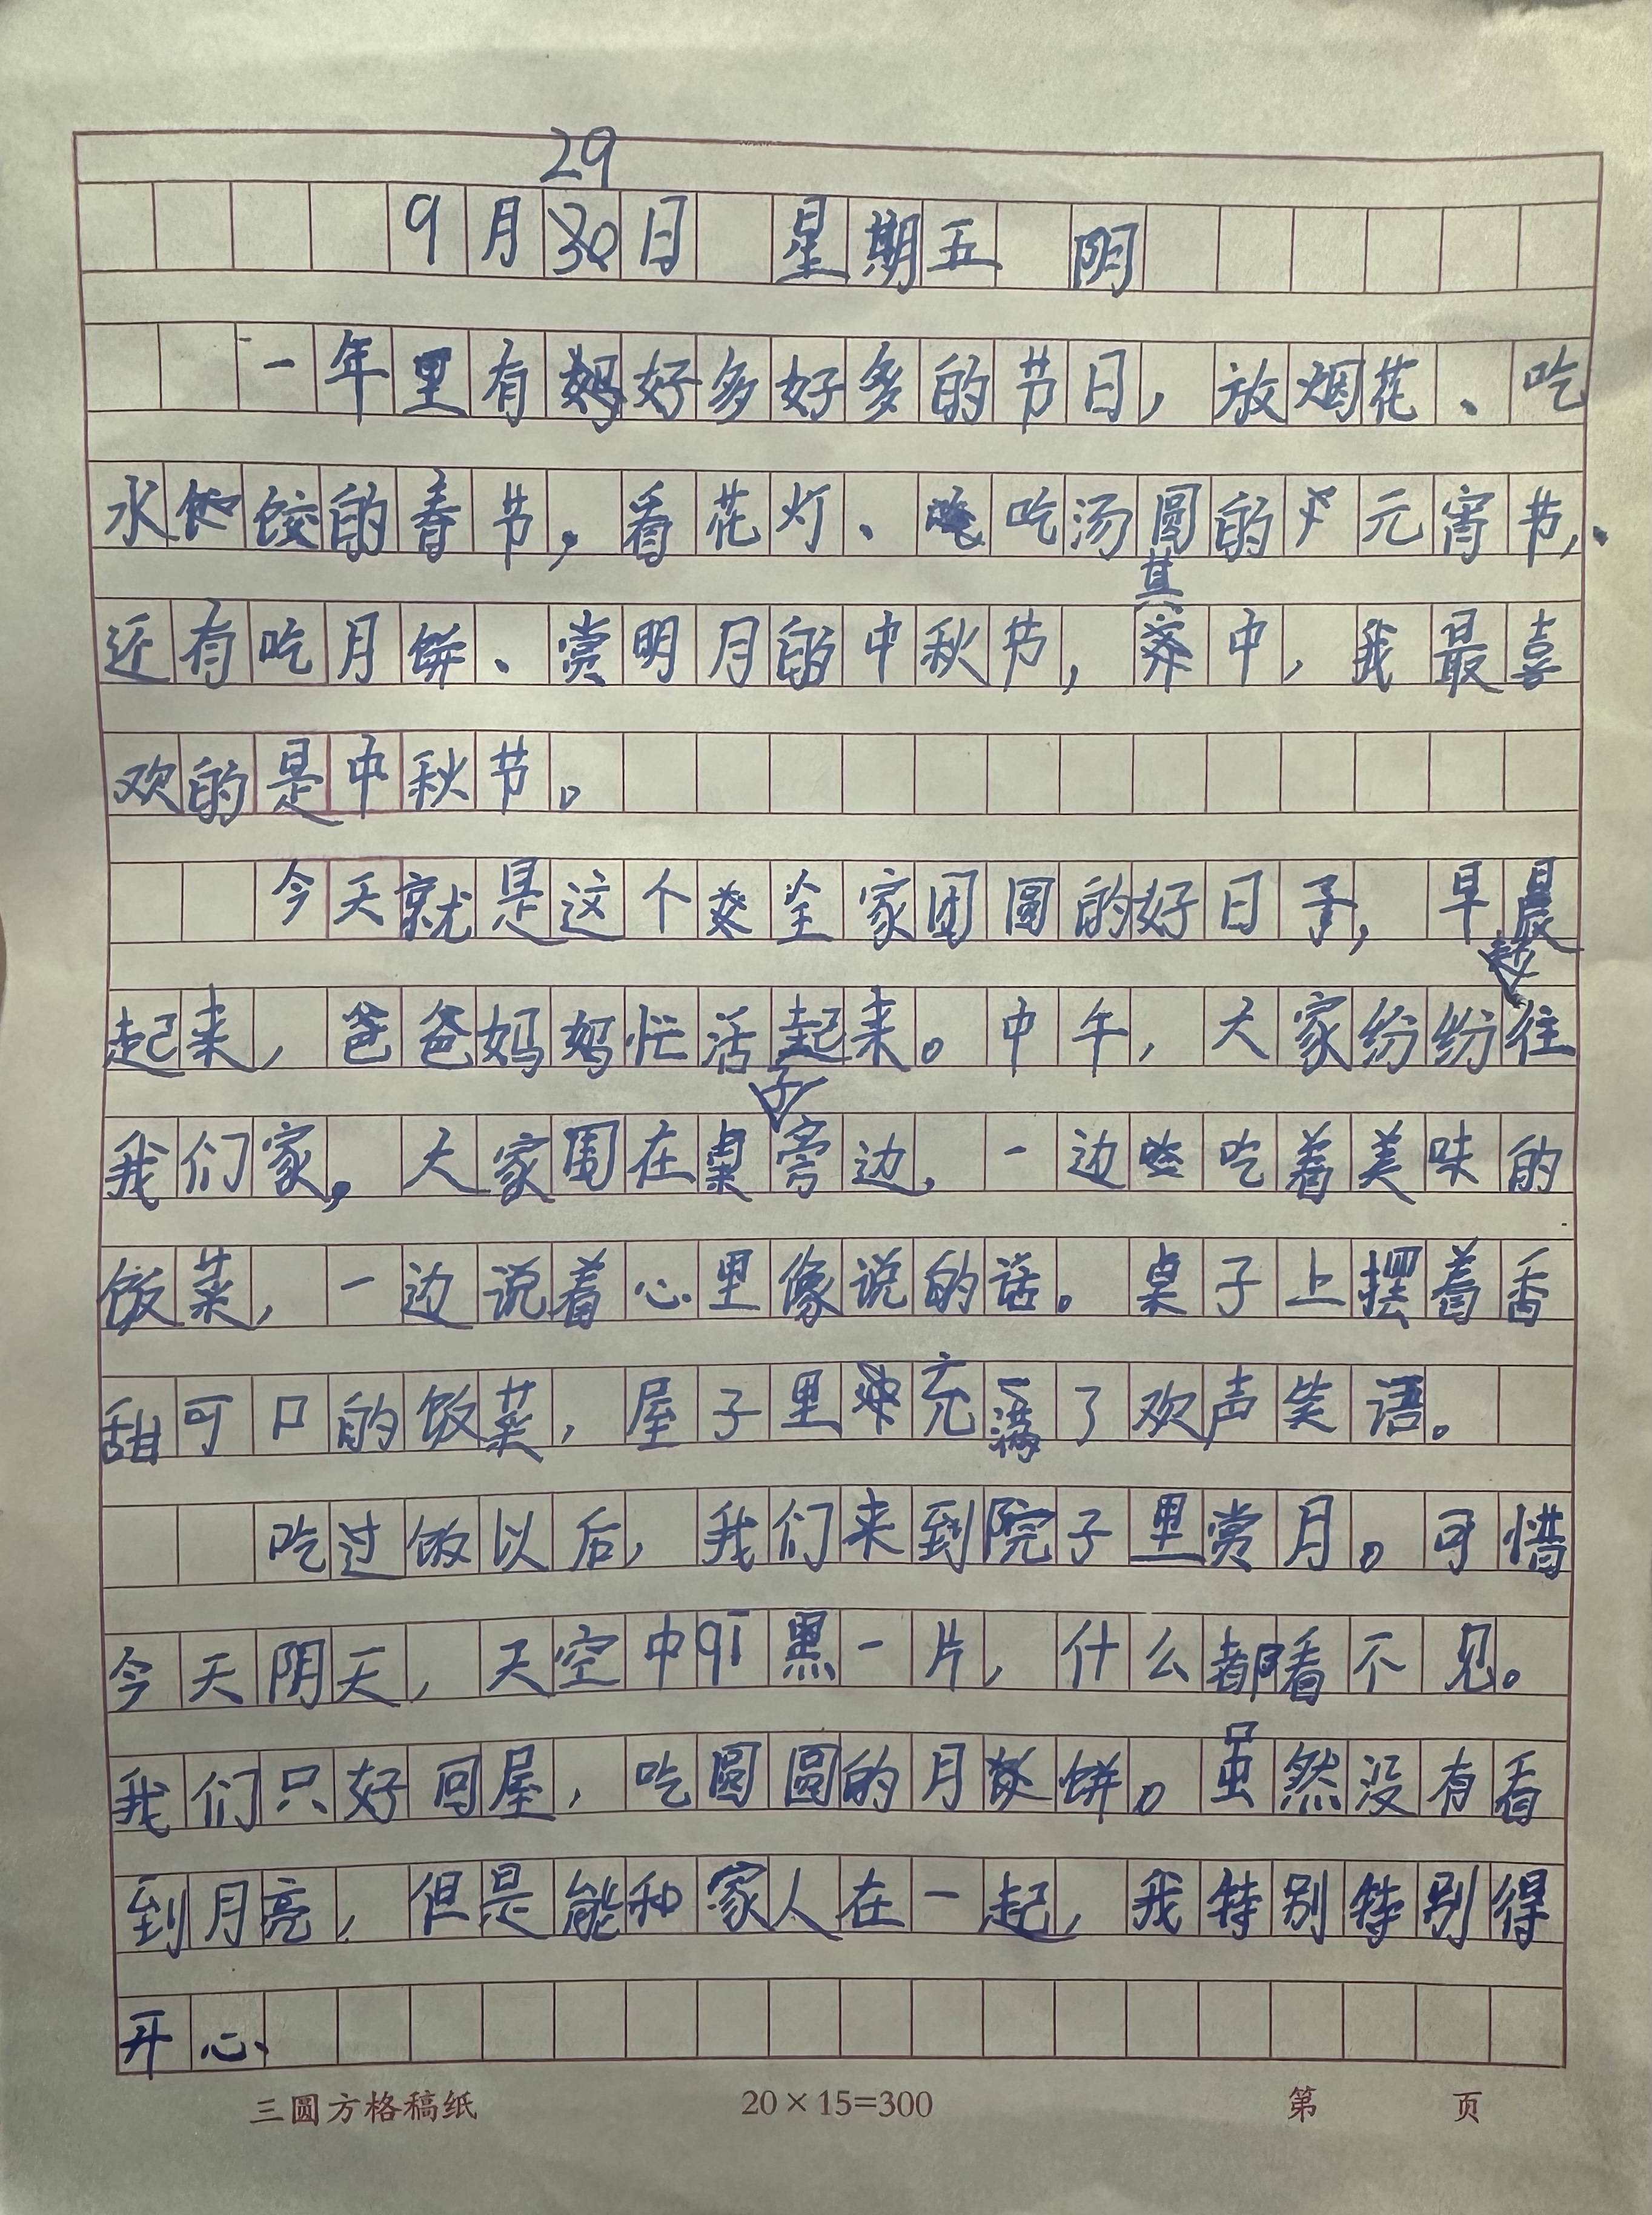 29
9月30日 星期五 阴
一年里有好多好多的节日，放烟花、吃
水饺的春节，看花灯、吃汤圆的元宵节，
还有吃月饼、赏明月的中秋节，其中，我最喜
欢的是中秋节。
今天就是这个全家团圆的好日子，早晨
起来，爸爸妈妈忙活起来。中午，大家纷纷赶往
我们家，大家围在桌子旁边，一边吃着美味的
饭菜，一边说着心里像说的话。桌子上摆着香
甜可口的饭菜，屋子里充满了欢声笑语。
吃过饭以后，我们来到院子里赏月。可惜
今天阴天，天空中黑一片，什么都看不见。
我们只好回屋，吃圆圆的月饼。虽然没有看
到月亮，但是能和家人在一起，我特别特别得
开心、
三圆方格稿纸 20×15=300 第 页